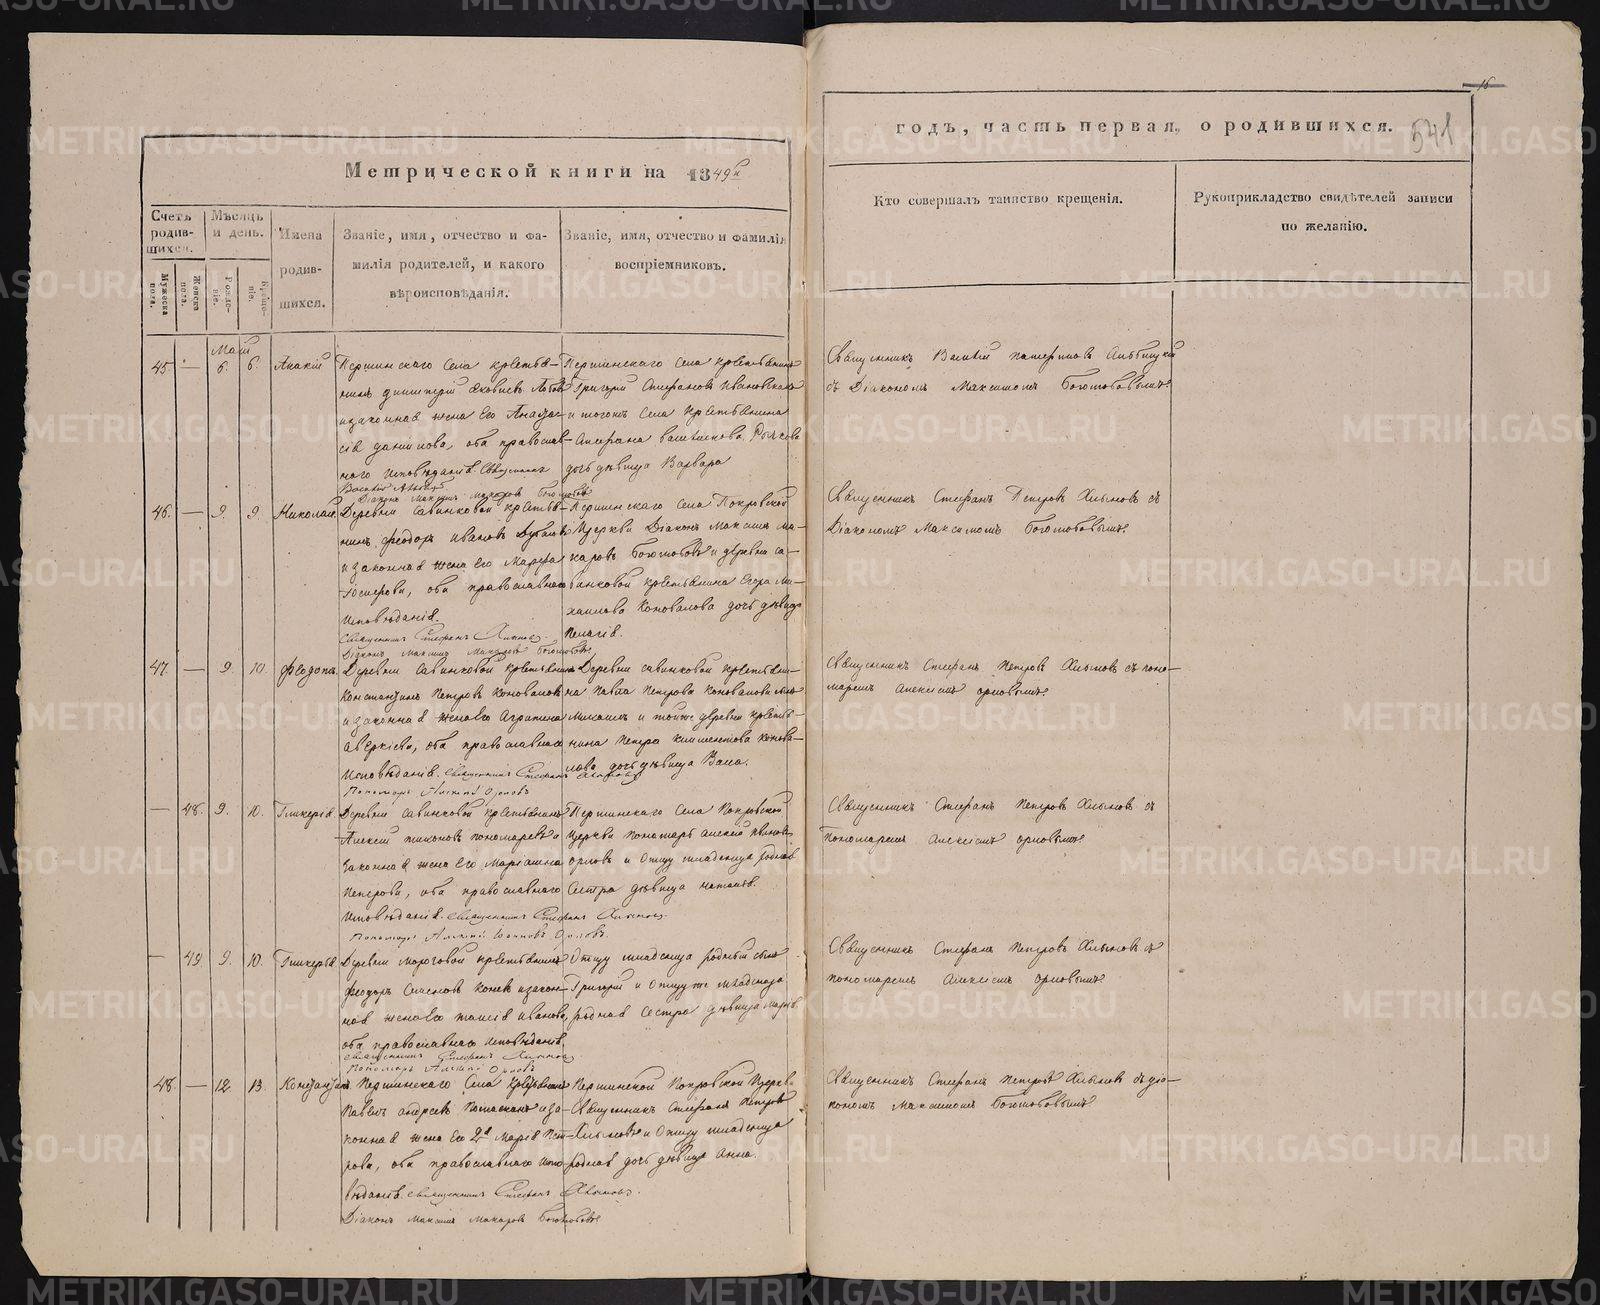 Метрической книги на 1849й
годъ, часть первая, о родившихся.
541
16
Счетъ родив-шихся.
Мѣсяцъ и день.
Имена родив-шихся.
Званіе, имя, отчество и фа-
милія родителей, и какого
вѣроисповѣданія.
Званіе, имя, отчество и фамилія
воспріемниковъ.
Мужеска пола.
Женска пола.
Рожде-ніе.
Креще-ніе.
Кто совершалъ таинство крещенія.
Рукоприкладство свидѣтелей записи
по желанію.
Маій
45 — 6. 6. Анакій
Першинскаго Села крестья-
нинъ Димитрій Яковлевъ
и законная жена Его Анаста-
сія Данилова, оба православ-
наго исповѣданія. Священникъ
Діаконъ Максимъ Макаровъ Боголюбовъ
Першинскаго Села крестьянинъ
Григорій Стефановъ Ивановскихъ
и тогожъ Села крестьянина
Стефана
дочь дѣвица Варвара
Священникъ Василій
съ Діакономъ Максимомъ Боголюбовымъ
46. — 9. 9. Николай
Деревни Савинковой крестья-
нинъ Феодоръ Ивановъ
и законная жена Его Марфа
оба православнаго
исповѣданія.
Священникъ Стефанъ Хлыновъ.
Діаконъ Максимъ Макаровъ Боголюбовъ
Першинскаго Села Покровской
Церкви Діаконъ Максимъ Ма-
каровъ Боголюбовъ и деревни Са-
винковой крестьянина Егора Ми-
хаилова Коновалова дочь дѣвица
Пелагія.
Священникъ Стефанъ Петровъ Хлыновъ съ
Діакономъ Максимомъ Боголюбовымъ
47. — 9. 10. Феодоръ
Деревни Савинковой крестьянинъ
Константинъ Петровъ Коноваловъ
и законная жена его Агрипина
Аверкіева, оба православнаго
исповѣданія. Священникъ Стефанъ Хлыновъ
Пономарь Алексій Орловъ
Деревни Савинковой крестьяни-
на Павла Петрова Коновалова сынъ
Михаилъ и тойже деревни крестья-
нина Петра Климентова Конова-
лова дочь дѣвица
Священникъ Стефанъ Петровъ Хлыновъ съ поно-
маремъ Алексіемъ Орловымъ
— 48. 9. 10. Гликерія
Деревни Савинковой крестьянинъ
Алексій Тихоновъ Пономаревъ и
законная жена Его Маріамна
Петрова, оба православнаго
исповѣданія. Священникъ Стефанъ Хлыновъ.
Пономарь Алексій Іоанновъ Орловъ.
Першинскаго Села Покровской
Церкви Пономарь Алексій Ивановъ
Орловъ и Отцу младенца родная
Сестра дѣвица Наталія.
Священникъ Стефанъ Петровъ Хлыновъ съ
Пономаремъ Алексіемъ Орловымъ
— 49. 9. 10. Гликерія
Деревни Мороговой крестьянинъ
Феодоръ Семеновъ Коневъ и закон-
ная жена его Таисія Иванова,
оба православнаго исповѣданія.
Священникъ Стефанъ Хлыновъ
Пономарь Алексій Орловъ
Отцу младенца родный сынъ
Григорій и Отцу же младенца
родная Сестра дѣвица
Священникъ Стефанъ Петровъ Хлыновъ съ
пономаремъ Алексіемъ Орловымъ
48 — 12. 13. Константинъ
Першинскаго Села крестьянинъ
Павелъ Андреевъ и за-
конная жена Его 2я Марія Пет-
рова, оба православнаго испо-
вѣданія. Священникъ Стефанъ Хлыновъ.
Діаконъ Максимъ Макаровъ Боголюбовъ
Першинской Покровской Церкви
Священникъ Стефанъ Петровъ
Хлыновъ и Отцу младенца
родная дочь дѣвица Анна.
Священникъ Стефанъ Петровъ Хлыновъ съ діа-
кономъ Максимомъ Боголюбовымъ
METRIKI.GASO-URAL.RU